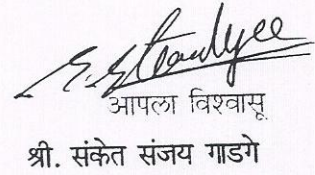 आपला विश्वासू
श्री. संकेत संजय गाडगे